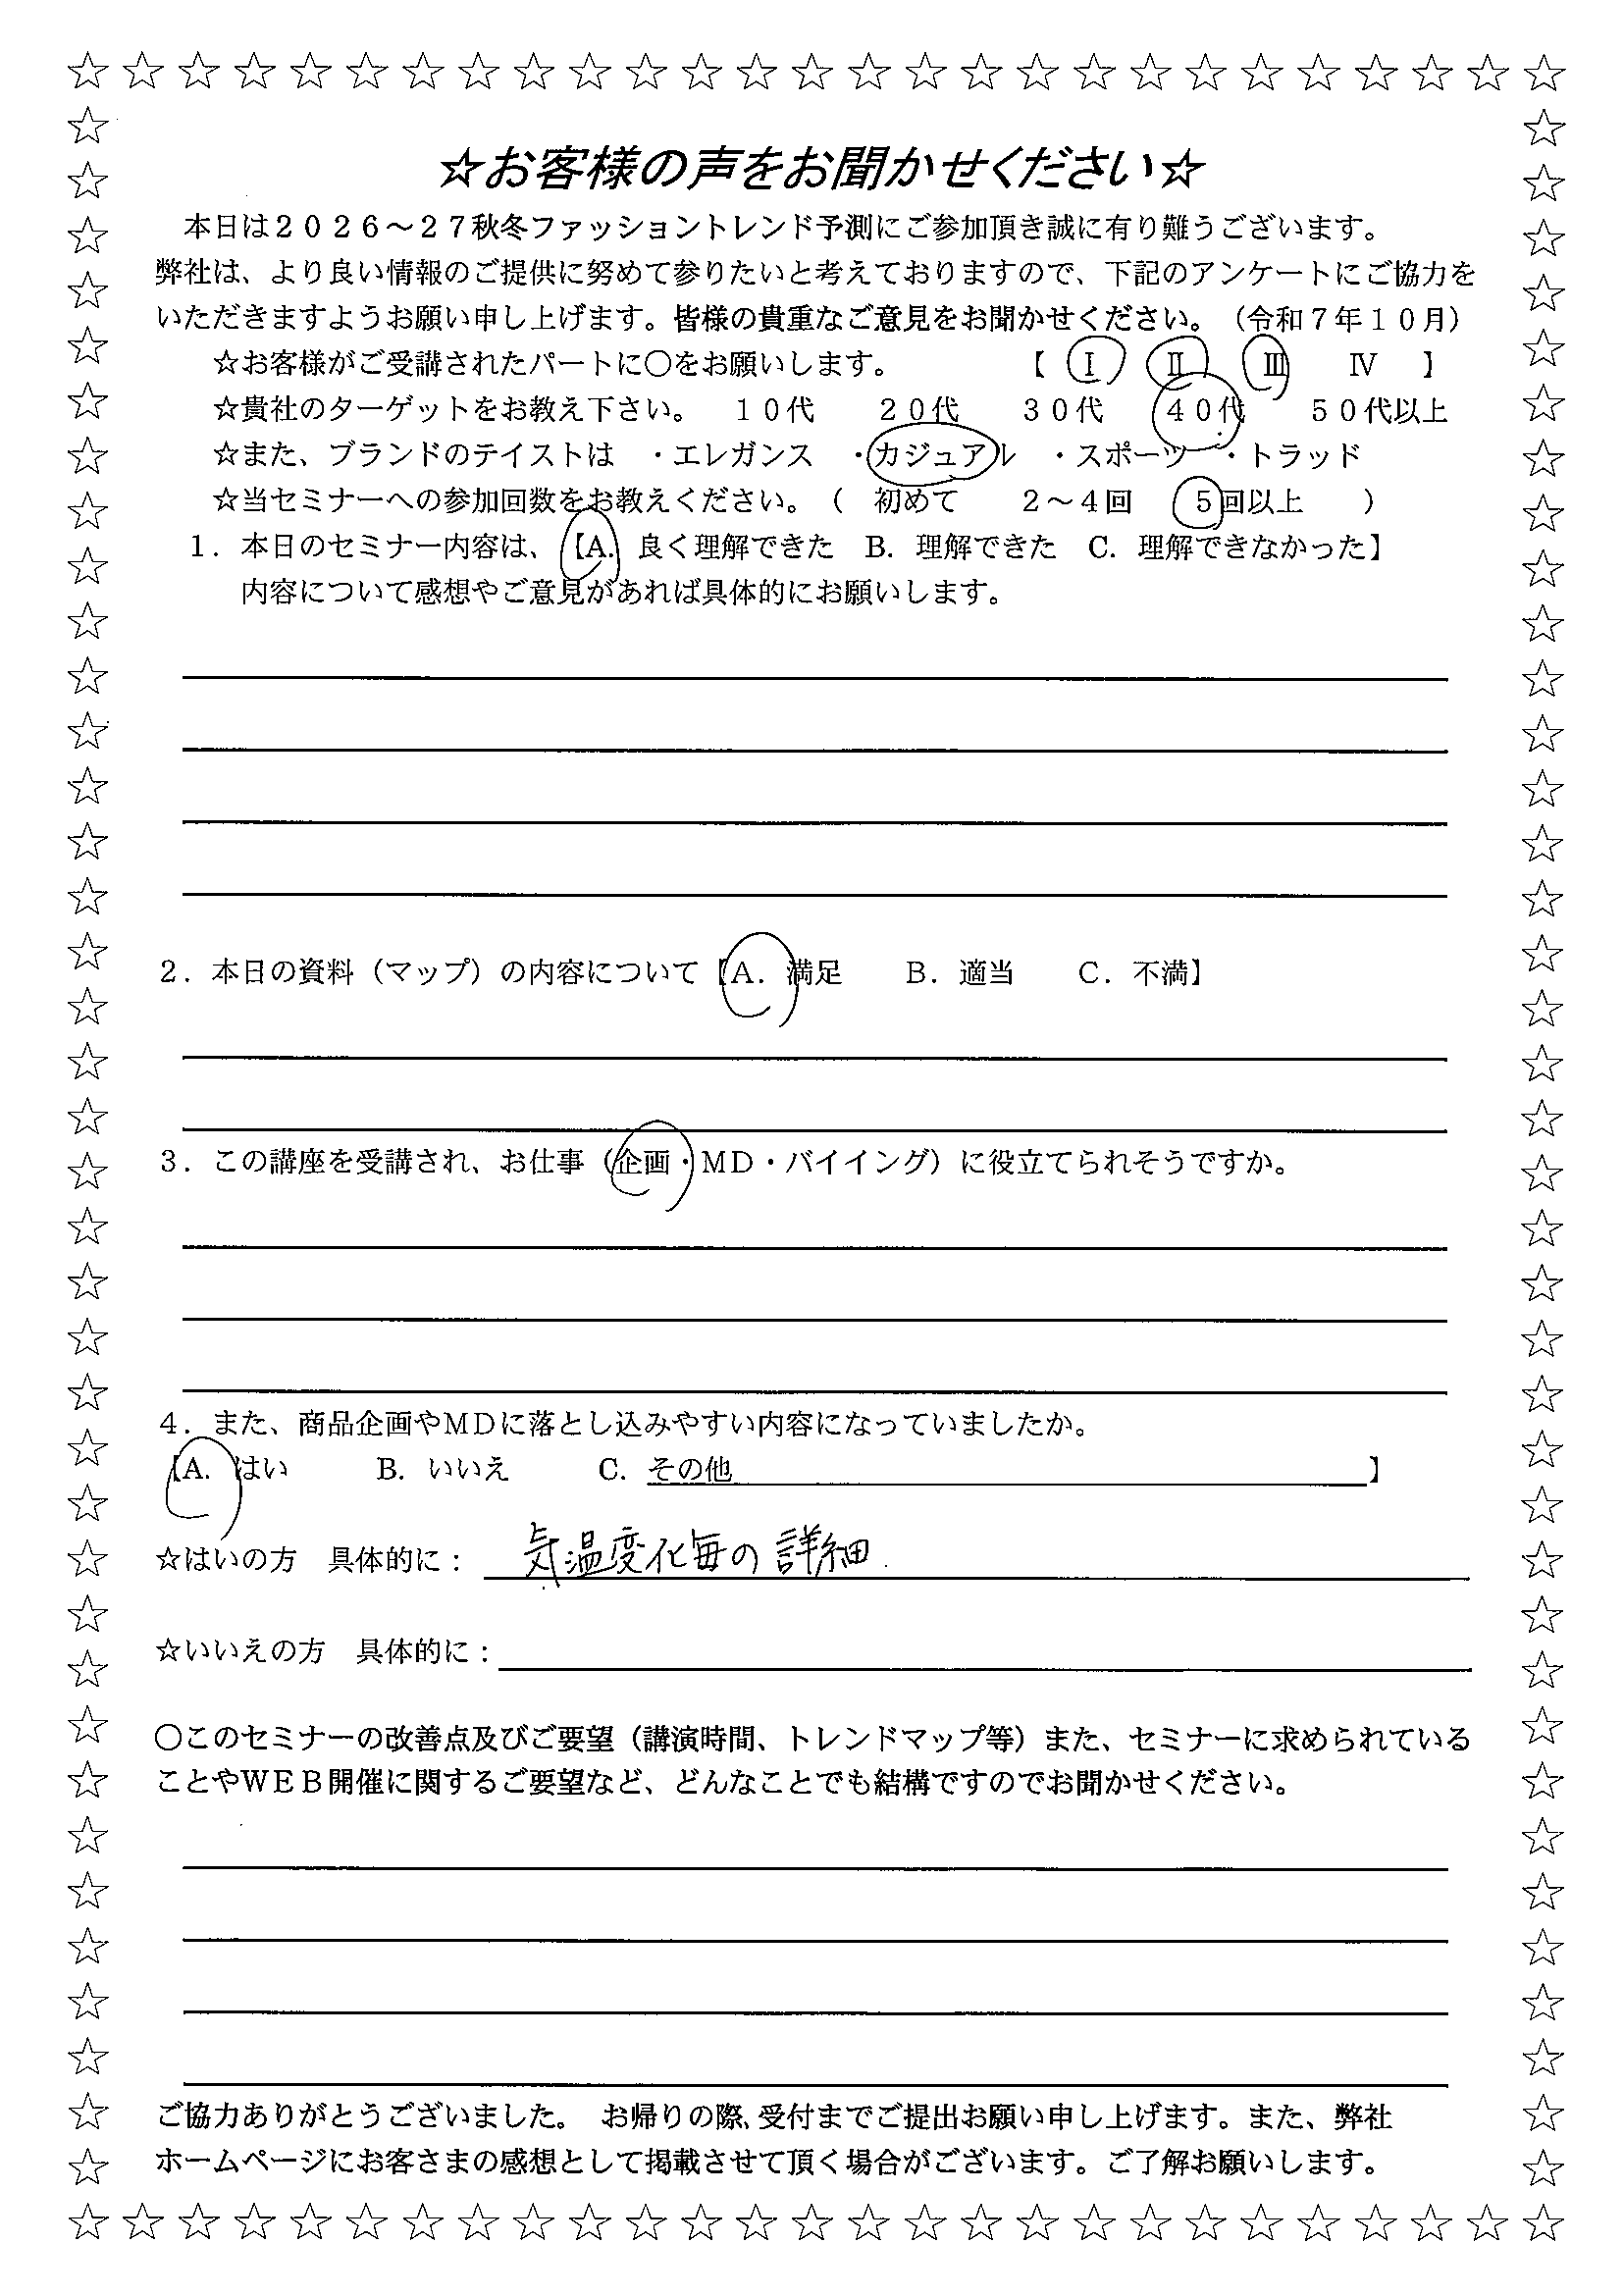 ☆お客様の声をお聞かせください☆
本日は２０２６～２７秋冬ファッショントレンド予測にご参加頂き誠に有り難うございます。
弊社は、より良い情報のご提供に努めて参りたいと考えておりますので、下記のアンケートにご協力を
いただきますようお願い申し上げます。皆様の貴重なご意見をお聞かせください。（令和７年１０月）
☆お客様がご受講されたパートに〇をお願いします。　【　Ⅰ　Ⅱ　Ⅲ　Ⅳ　】
☆貴社のターゲットをお教え下さい。　１０代　２０代　３０代　４０代　５０代以上
☆また、ブランドのテイストは　・エレガンス　・カジュアル　・スポーツ　・トラッド
☆当セミナーへの参加回数をお教えください。（　初めて　２～４回　５回以上　）
１．本日のセミナー内容は、【A．良く理解できた　B．理解できた　C．理解できなかった】
内容について感想やご意見があれば具体的にお願いします。
２．本日の資料（マップ）の内容について【A．満足　B．適当　C．不満】
３．この講座を受講され、お仕事（企画・ＭＤ・バイイング）に役立てられそうですか。
４．また、商品企画やＭＤに落とし込みやすい内容になっていましたか。
【A．はい　B．いいえ　C．その他　】
☆はいの方　具体的に：　気温変化毎の詳細
☆いいえの方　具体的に：
〇このセミナーの改善点及びご要望（講演時間、トレンドマップ等）また、セミナーに求められている
ことやＷＥＢ開催に関するご要望など、どんなことでも結構ですのでお聞かせください。
ご協力ありがとうございました。　お帰りの際、受付までご提出お願い申し上げます。また、弊社
ホームページにお客さまの感想として掲載させて頂く場合がございます。ご了解お願いします。